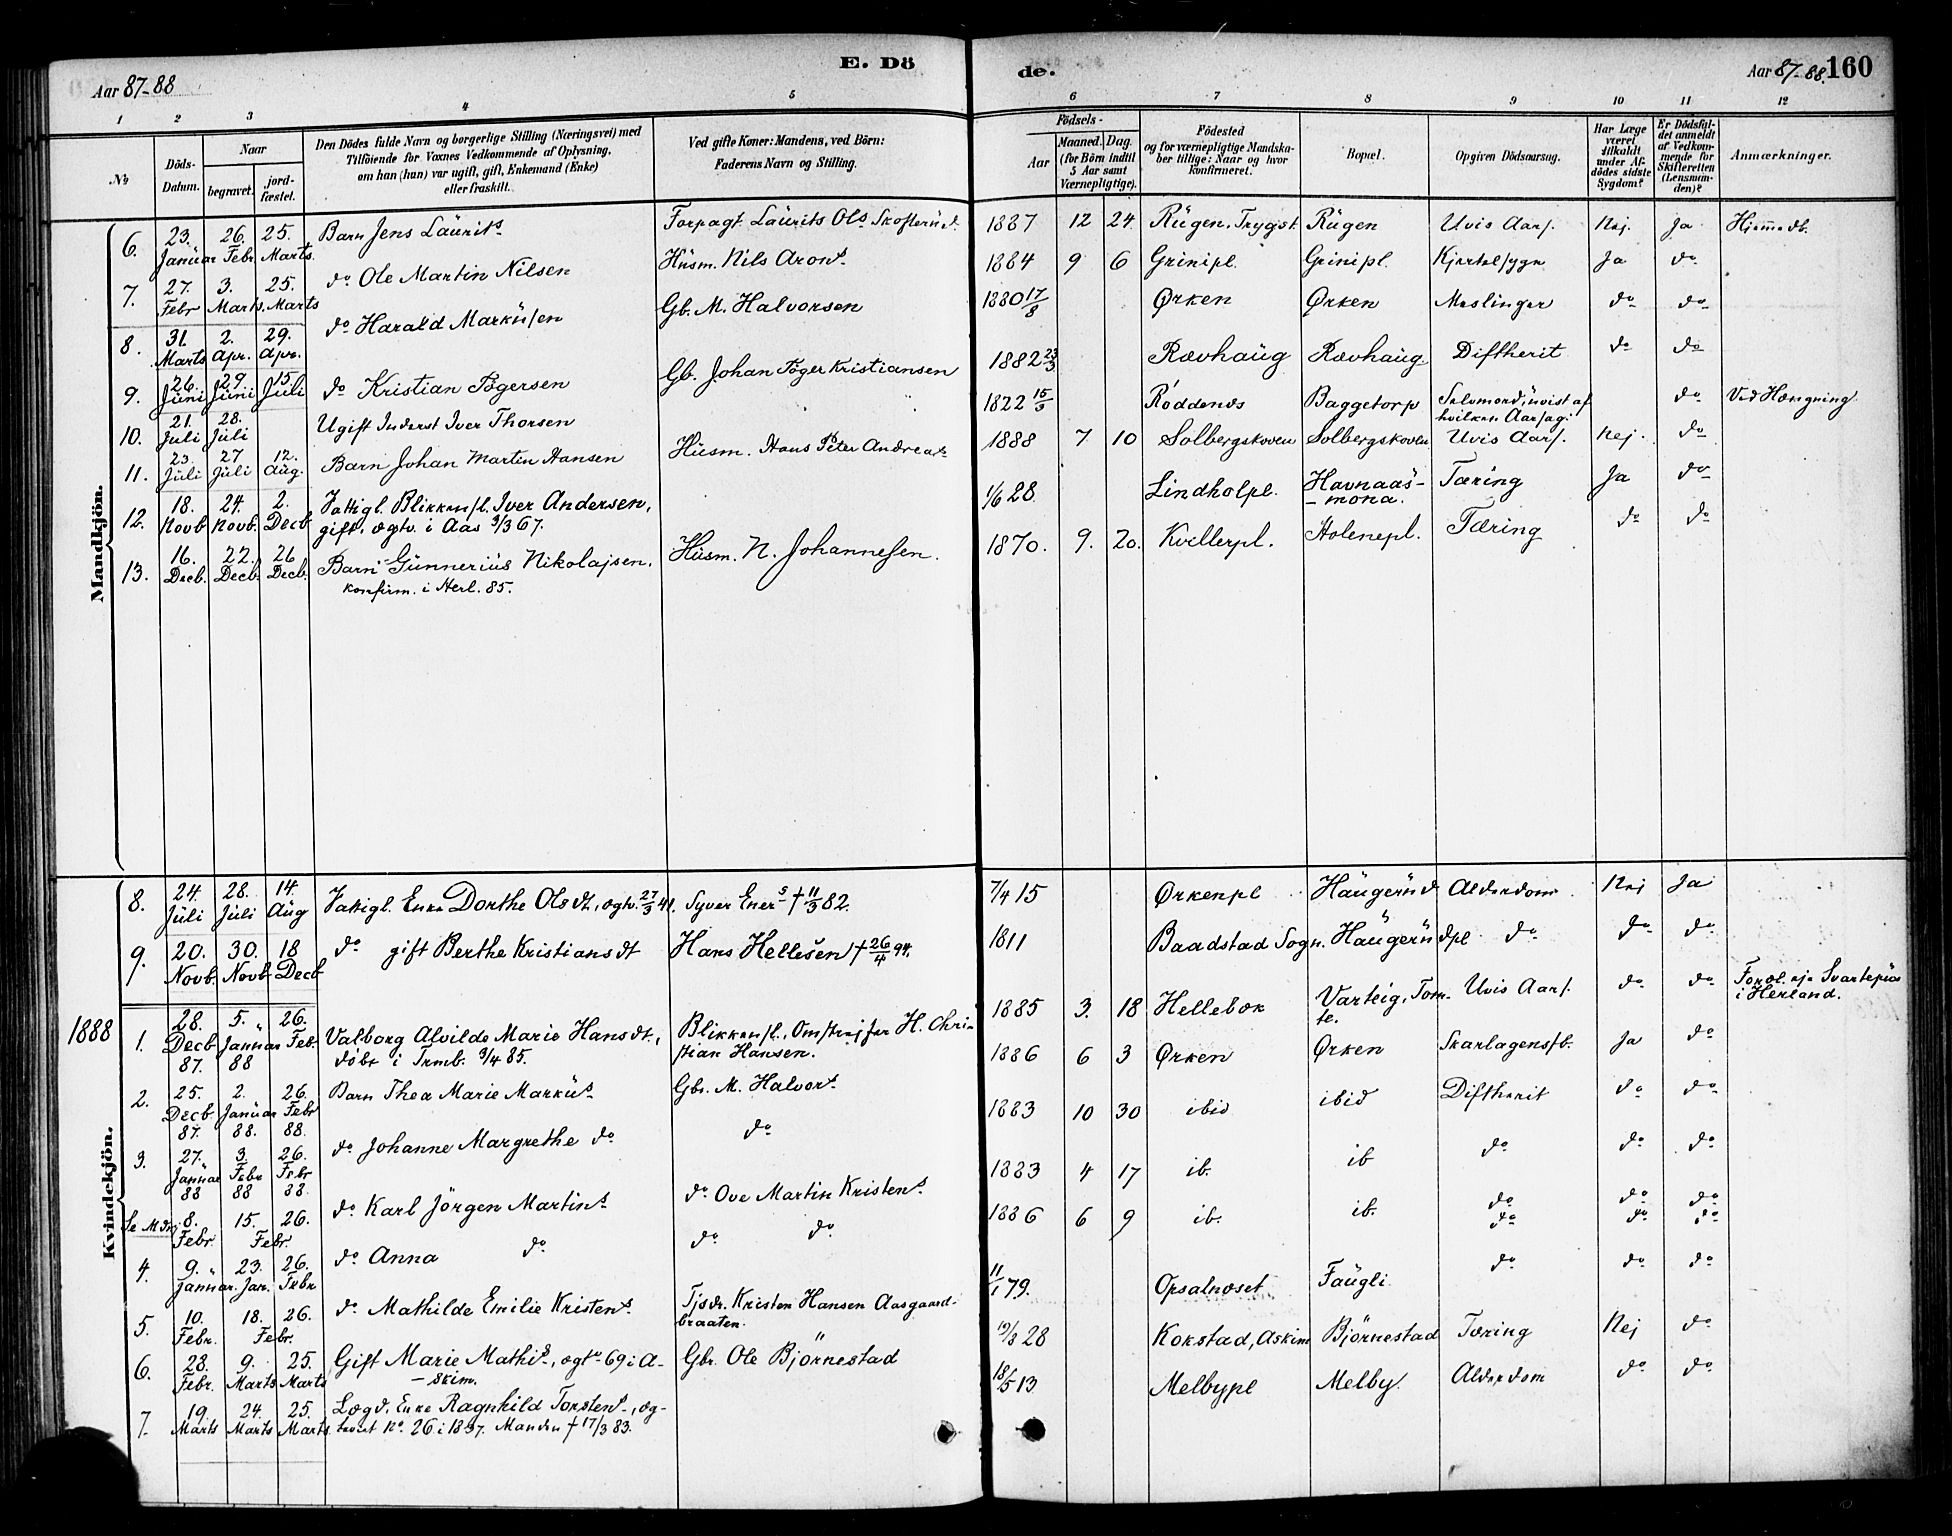 Aar 87-88
E. Dö
1 2 3 4 5
No
Döds-
Datum.
Naar
begravet.
jord-
fæstet.
Den Dödes fulde Navn og borgerlige Stilling (Næringsvei) med
Tilföiende for Voxnes Vedkommende af Oplysning,
om han (hun) var ugift, gift, Enkemand (Enke)
eller fraskilt.
Ved gifte Koner: Mandens, ved Börn:
Faderens Navn og Stilling.
Mandkjön.
6. 23. Januar 26. Febr 25. Marts. Barn Jens Laurits. Forpagt. Laurits Ols. Skofterud.
7. 27. Febr 3. Marts. 25. Marts do Ole Martin Nilsen Husm. Nils Arons.
8. 31. Marts 2. Apr. 29. Apr. do Harald Markusen Gb. M. Halvorsen
9. 26. Juni 29. Juni 15. Juli do Kristian Tögersen Gb. Johan Töger Kristiansen
10. 21. Juli 28. Juli Ugift Inderst Iver Thorsen
11. 23. Juli 27 Juli 12. Aug. Barn Johan Martin Hansen Husm. Hans Peter Andreas.
12. 18. Novb. 24. Novb. 2. Decb. Fattigl. Blikkensl. Iver Andersen,
gift, ægtv. i Aas 3/3 67.
13. 16. Decb. 22. Decb. 26 Decb. Barn Gunnerius Nikolajsen, Husm. N. Johannesen.
konfirm. i Herl. 85.
Kvindekjön.
8. 24. Juli 28. Juli 14. Aug Fattigl. Enke Dorthe Olsdt., ægtv. 27/3 41. Syver Eners † 11/3 82.
9. 20. Novb. 30. Novb. 18 Decb do gift Berthe Kristiansdt Hans Hellesen † 26/4 94.
1888
1. 28. Decb 87. 5. Januar 88 26. Feb. Valborg Alvilde Marie Hansdt., Blikkensl., Omstrejfer H. Chri-
döbt i Trmb. 3/4 85. stian Hansen.
2. 25. Decb. 87. 2. Januar 88. 26. Febr 88. Barn Thea Marie Markus. Gbr. M. Halvors.
3. 27. Januar 88 3. Febr 88 26. Febr 88. do Johanne Margrethe do do
Se M dkj 8. Febr. 15. 26. Febr. do Karl Jörgen Martins. do Ove Martin Kristens.
4. 9. Januar. 23. Jan. 26. Febr do Anna do do do
5. 10. Febr. 18. 26. Febr. do Mathilde Emilie Kristens. Tjsdr. Kristen Hansen Aasgaard-
braaten.
6. 28. Febr. 9. Marts 25. Marts Gift Marie Mathis., ægtv. 69 i A- Gbr. Ole Björnestad
-skim.
7. 19. Marts 24. Marts 25. Marts. Lægd. Enke Ragnhild Torstens., æg-
teviet No. 26 i 1837. Manden † 17/3 83.
de.
Aar 87-88. 160
6 7 8 9 10 11 12
Födsels-
Aar
Maaned.
Dag.
(for Börn indtil
5 Aar samt
Værnepligtige).
Födested
og for værnepligtige Mandska-
ber tillige: Naar og hvor
konfirmeret.
Bopæl.
Opgiven Dödsaarsag.
Har Læge
været
tilkaldt
under Af-
dödes sidste
Sygdom?
Er Dödsfal-
det anmeldt
af Vedkom-
mende for
Skifteretten
(Lensman-
den)?
Anmærkninger.
1887 12 24 Rügen, Trygst. Rügen Uvis Aars. Nej. Ja Hjemmedb.
1884 9 6 Grinipl. Grinipl. Kjertelsyge Ja do
1880 17/8 Ørken Ørken Meslinger do do
1882 23/3 Rævhaug Rævhaug Diftherit do do
1822 15/3 Röddenæs Baggetorp Selvmord, uvist af do Ved Hængning.
hvilken Aarsag.
1888 7 10 Solbergskoven Solbergskoven Uvis Aars. Nej. do
1/6 28. Lindholpl. Havnaas- Tæring Ja do
-mona.
1870. 9. 20. Kvillerpl. Holenepl. Tæring do do
7/4 15 Ørkenpl Haugerud Alderdom. Nej Ja
1811 Baadstad Sogn. Haugerudpl do do do
1885 3. 18 Hellebæk Varteig, Tom- Uvis Aars. do do
te. i Herland.
1886 6 3 Ørken Ørken Skarlagensfb. Ja do
1883 10 30 ibid ibid Diftherit do do
1883 4 17 ib. ib do do do
1886 6 9 ib. ib. do do do
do do do
11/1 79. Opsalnæset Faugli do do do
19/3 28 Kokstad, Askim Björnestad Tæring Nej do
18/5 13 Melbypl Melby. Alderdom do do